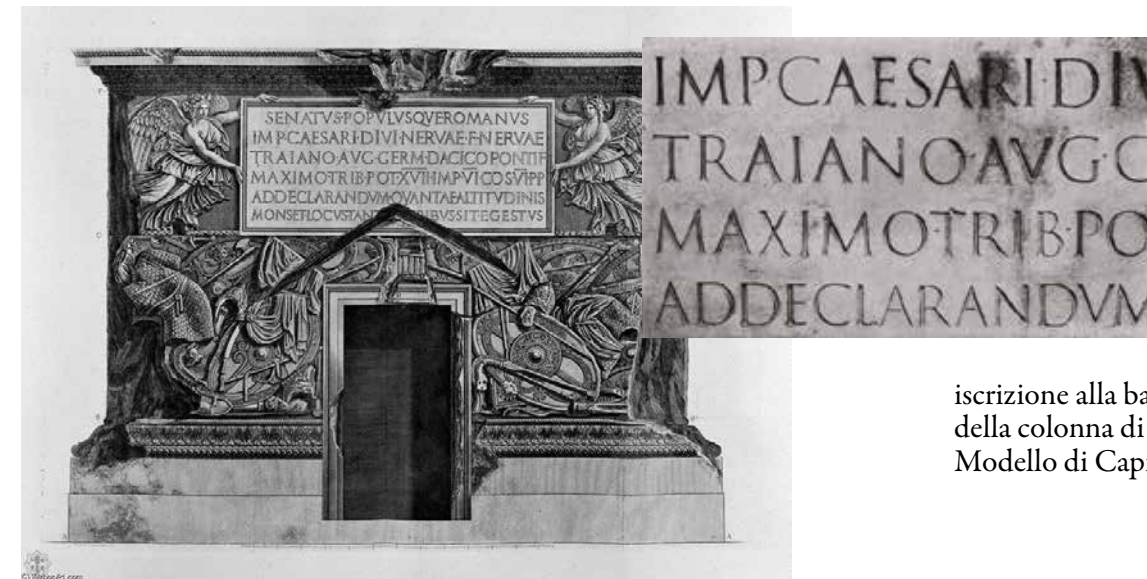 SENATVS·POPVLVSQVEROMANVS
IMP·CAESARI·DIVI·NERVAE·F·NERVAE
TRAIANO·AVG·GERM·DACICO PONTIF
MAXIMOTRIB·POT·XVIIIMP·VI COSVIPP
ADDECLARANDVMQVANTAEALTITVDINIS
MONSETLOCVSTAN RIBVSSITEGESTVS
IMPCAESARI·DIV
TRAIANO·AVG·G
MAXIMOTRIB·PO
ADDECLARANDVM
iscrizione alla ba
della colonna di
Modello di Cap